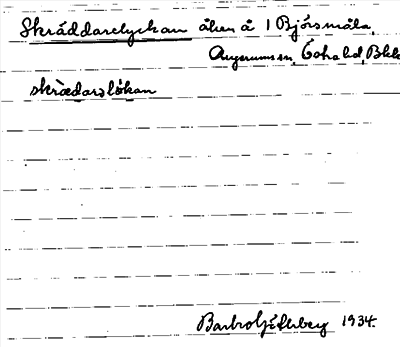 Skräddarelyckan åker å 1 Björsmåla,
Augerums sn, Östra hd, Blek
skrædarəløkan
Barbro 1934.